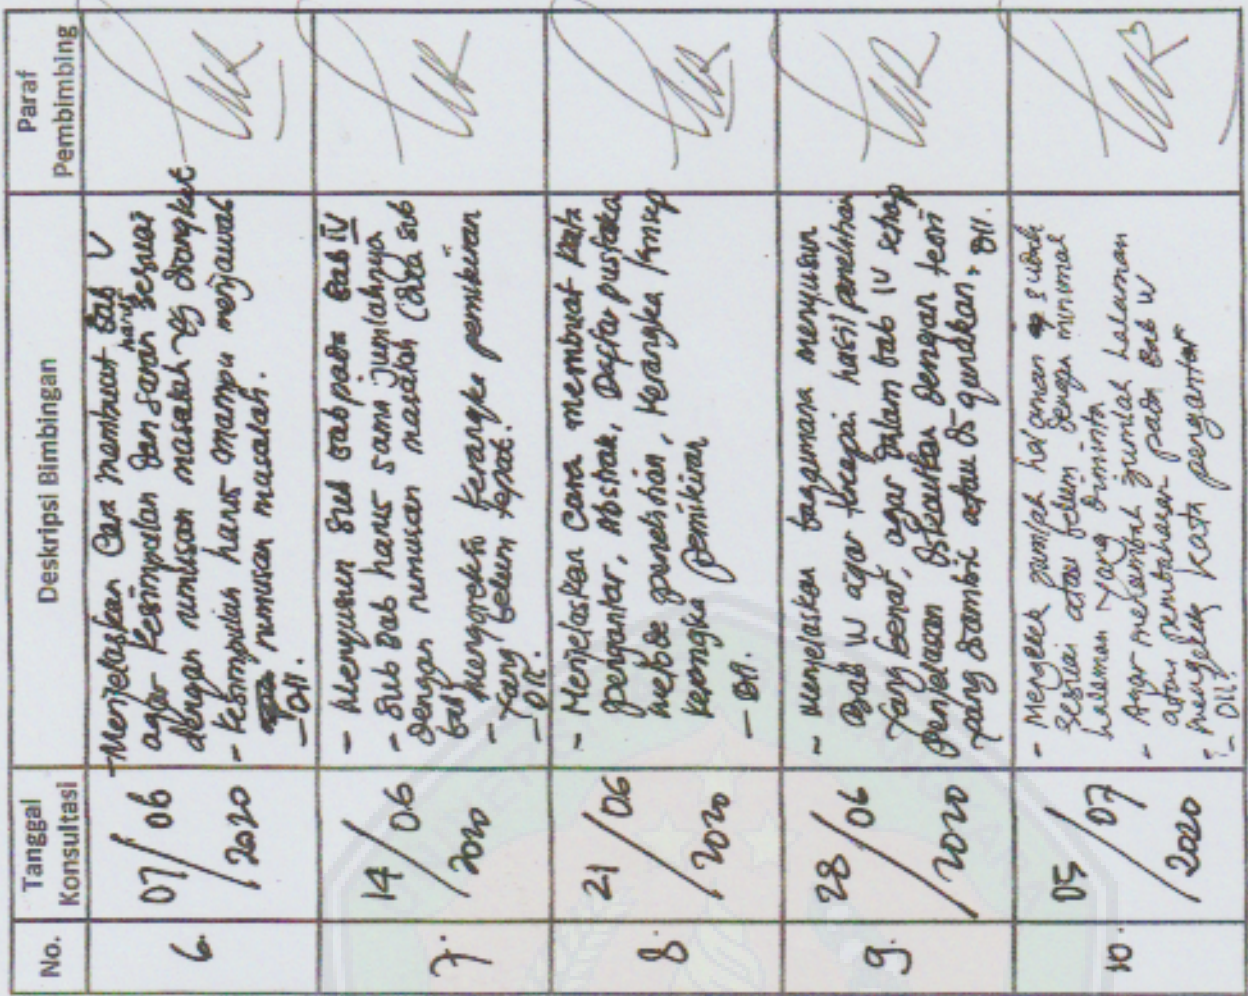 No.
Tanggal
Konsultasi
Deskripsi Bimbingan
Paraf
Pembimbing
6.
07/06
/2020
- Menjelaskan Cara membuat Bab V
agar Kesimpulan dan saran harus sesuai
dengan rumusan masalah yg diangkat
- Kesimpulan harus mampu menjawab
rumusan masalah.
- Dll.
7.
14/06
/2020
- Menyusun Sub bab pada Bab IV
- Sub bab harus sama jumlahnya
dengan rumusan masalah (ada sub
bab
- Mengoreksi Kerangka pemikiran
- yang belum tepat.
- Dll.
8.
21/06
/2020
- Menjelaskan Cara membuat kata
pengantar, Abstrak, Daftar pustaka
metode penelitian, Kerangka Konsep
Kerangka pemikiran
- Dll.
9.
28/06
/2020
- Menjelaskan bagaimana menyusun
Bab IV agar hasil penelitian
yang benar, agar dalam bab IV setiap
Penjelasan dikaitkan dengan teori
yang diambil atau di gunakan, Dll.
10.
05/07
/2020
- Mengecek jumlah halaman sudah
sesuai atau belum dengan minimal
halaman yang diminta
- Agar menambah jumlah halaman
atau pembahasan pada Bab IV
- Mengecek kata pengantar
- Dll.